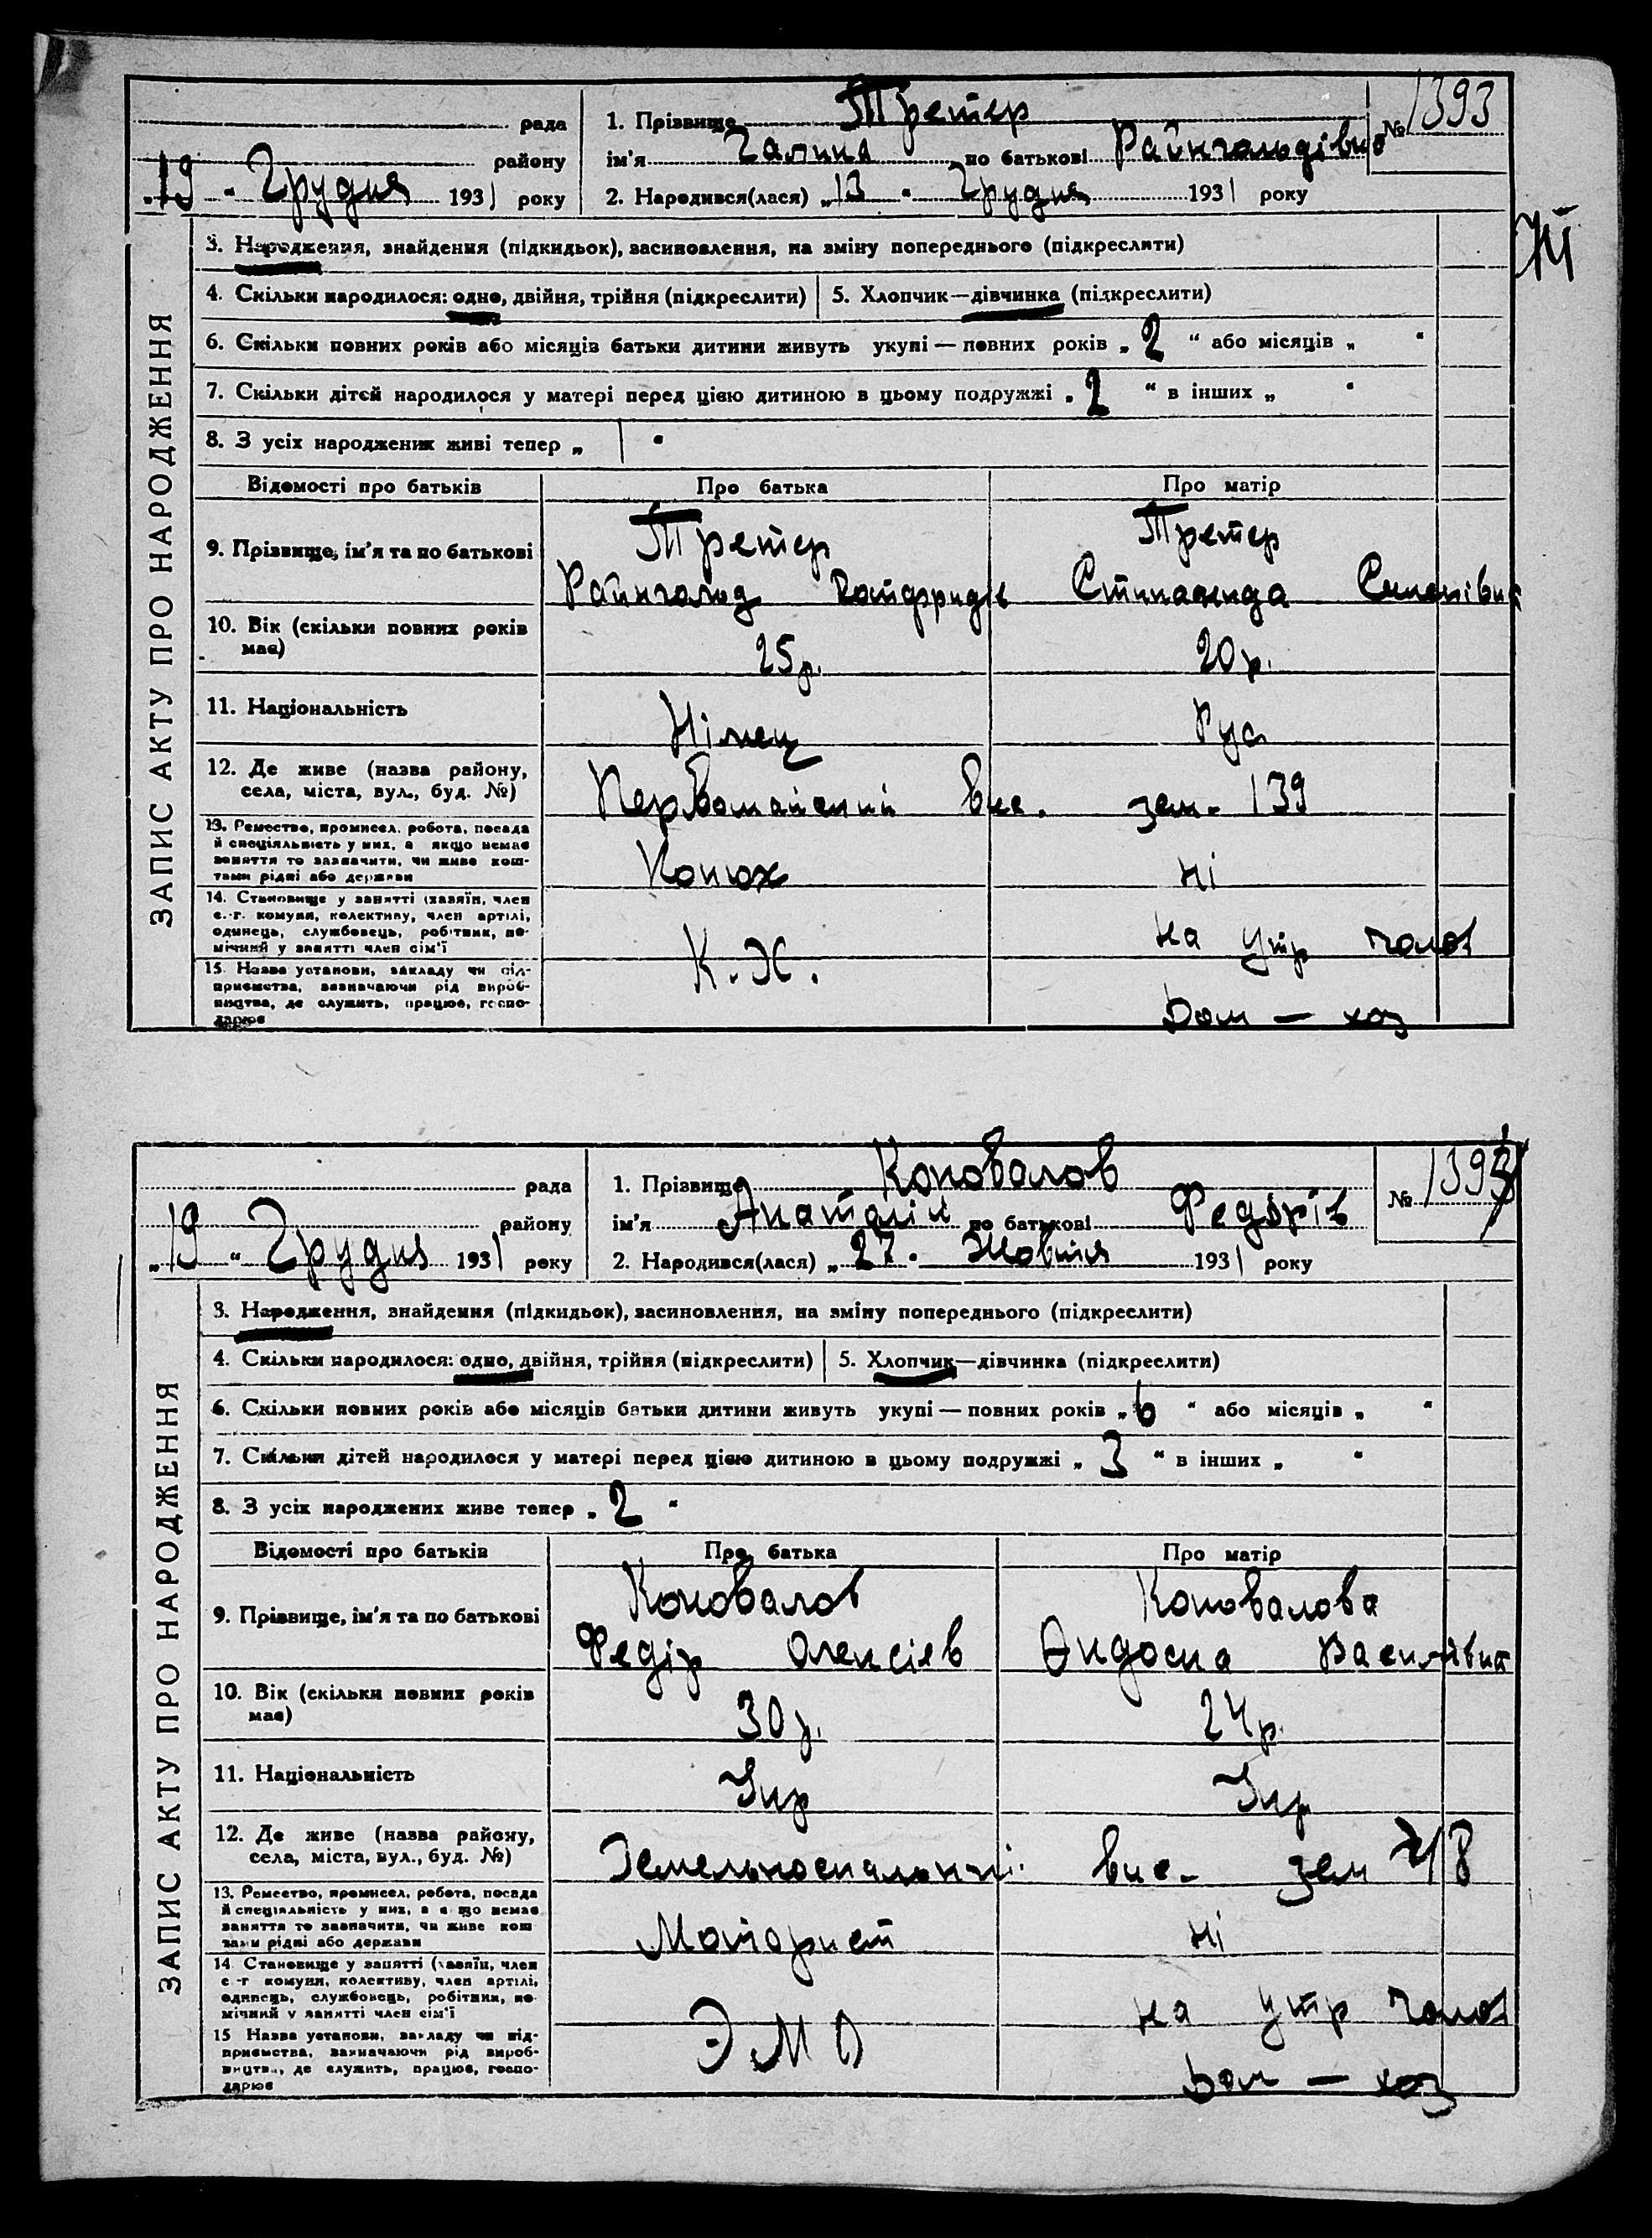 Третер
№ 1393
рада
1. Прізвище
району
ім'я Галина по батькові Райнгольдівна
„19 „ Грудня 1931 року
2. Народився(лася) „13 „ Грудня 1931 року
ЗАПИС АКТУ ПРО НАРОДЖЕННЯ
3. Народження, знайдення (підкидьок), засиновлення, на зміну попереднього (підкреслити)
4. Скільки народилося: одно, двійня, трійня (підкреслити) 5. Хлопчик—дівчинка (підкреслити)
6. Скільки повних років або місяців батьки дитини живуть укупі — повних років „ 2 “ або місяців „ “
7. Скільки дітей народилося у матері перед цією дитиною в цьому подружжі „ 2 “ в інших „ “
8. З усіх народжених живі тепер „ “
Відомості про батьків Про батька Про матір
9. Прізвище, ім'я та по батькові
Третер Третер
Райнгольд Готфридів
10. Вік (скільки повних років має)
25р. 20р.
11. Національність
Німец Рус
12. Де живе (назва району, села, міста, вул., буд. №)
Первомайський вис. зем. 139
13. Ремество, промисел, робота, посада й спеціяльність у них, а якщо немає заняття то зазначити, чи живе коштами рідні або держави
Конюх ні
14. Становище у занятті (хазяїн, член с.-г. комуни, колективу, член артілі, одинець, службовець, робітник, помічний у занятті член сім'ї
К.Х. на утр чолов
15. Назва установи, закладу чи підприємства, зазначаючи рід виробництва, де служить, працює, господарює
Дом — хоз
Коновалов
№ 1393
рада
1. Прізвище
району
ім'я Анатолій по батькові Федорів
„19 “ Грудня 1931 року
2. Народився(лася) „ 27 „ Жовтня 1931 року
ЗАПИС АКТУ ПРО НАРОДЖЕННЯ
3. Народження, знайдення (підкидьок), засиновлення, на зміну попереднього (підкреслити)
4. Скільки народилося: одно, двійня, трійня (підкреслити) 5. Хлопчик—дівчинка (підкреслити)
6. Скільки повних років або місяців батьки дитини живуть укупі — повних років „ 6 “ або місяців „ “
7. Скільки дітей народилося у матері перед цією дитиною в цьому подружжі „ 3 “ в інших „ “
8. З усіх народжених живе тепер „ 2 “
Відомості про батьків Про батька Про матір
9. Прізвище, ім'я та по батькові
Коновалов Коновалова
Федір Олексіев Василівна
10. Вік (скільки повних років має)
30р. 24р.
11. Національність
Укр Укр
12. Де живе (назва району, села, міста, вул., буд. №)
вис. зем 218
13. Ремество, промисел, робота, посада й спеціяльність у них, а якщо немає заняття то зазначити, чи живе коштами рідні або держави
Моторист ні
14. Становище у занятті (хазяїн, член с.-г. комуни, колективу, член артілі, одинець, службовець, робітник, помічний у занятті член сім'ї
на утр чолов
15. Назва установи, закладу чи підприємства, зазначаючи рід виробництва, де служить, працює, господарює
Дом — хоз